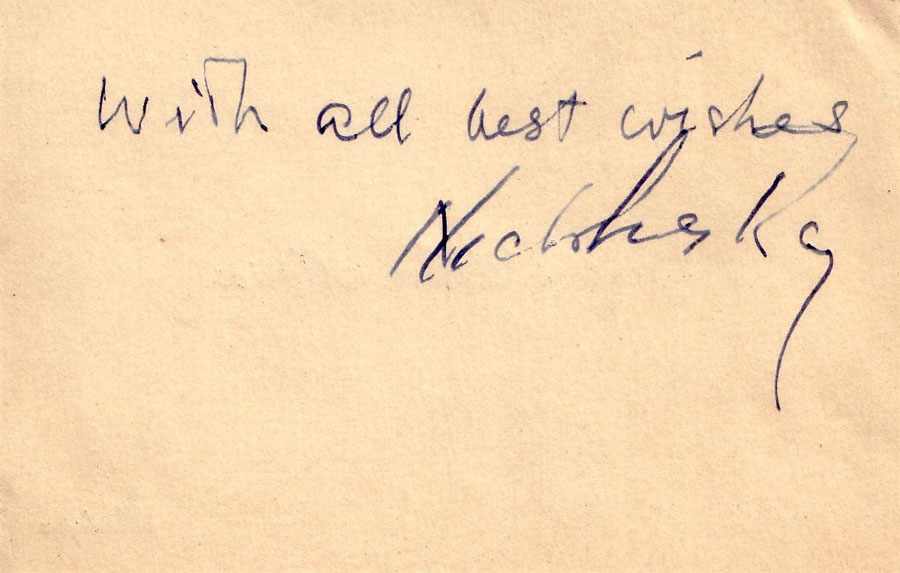 With all best wishes
Nicholas